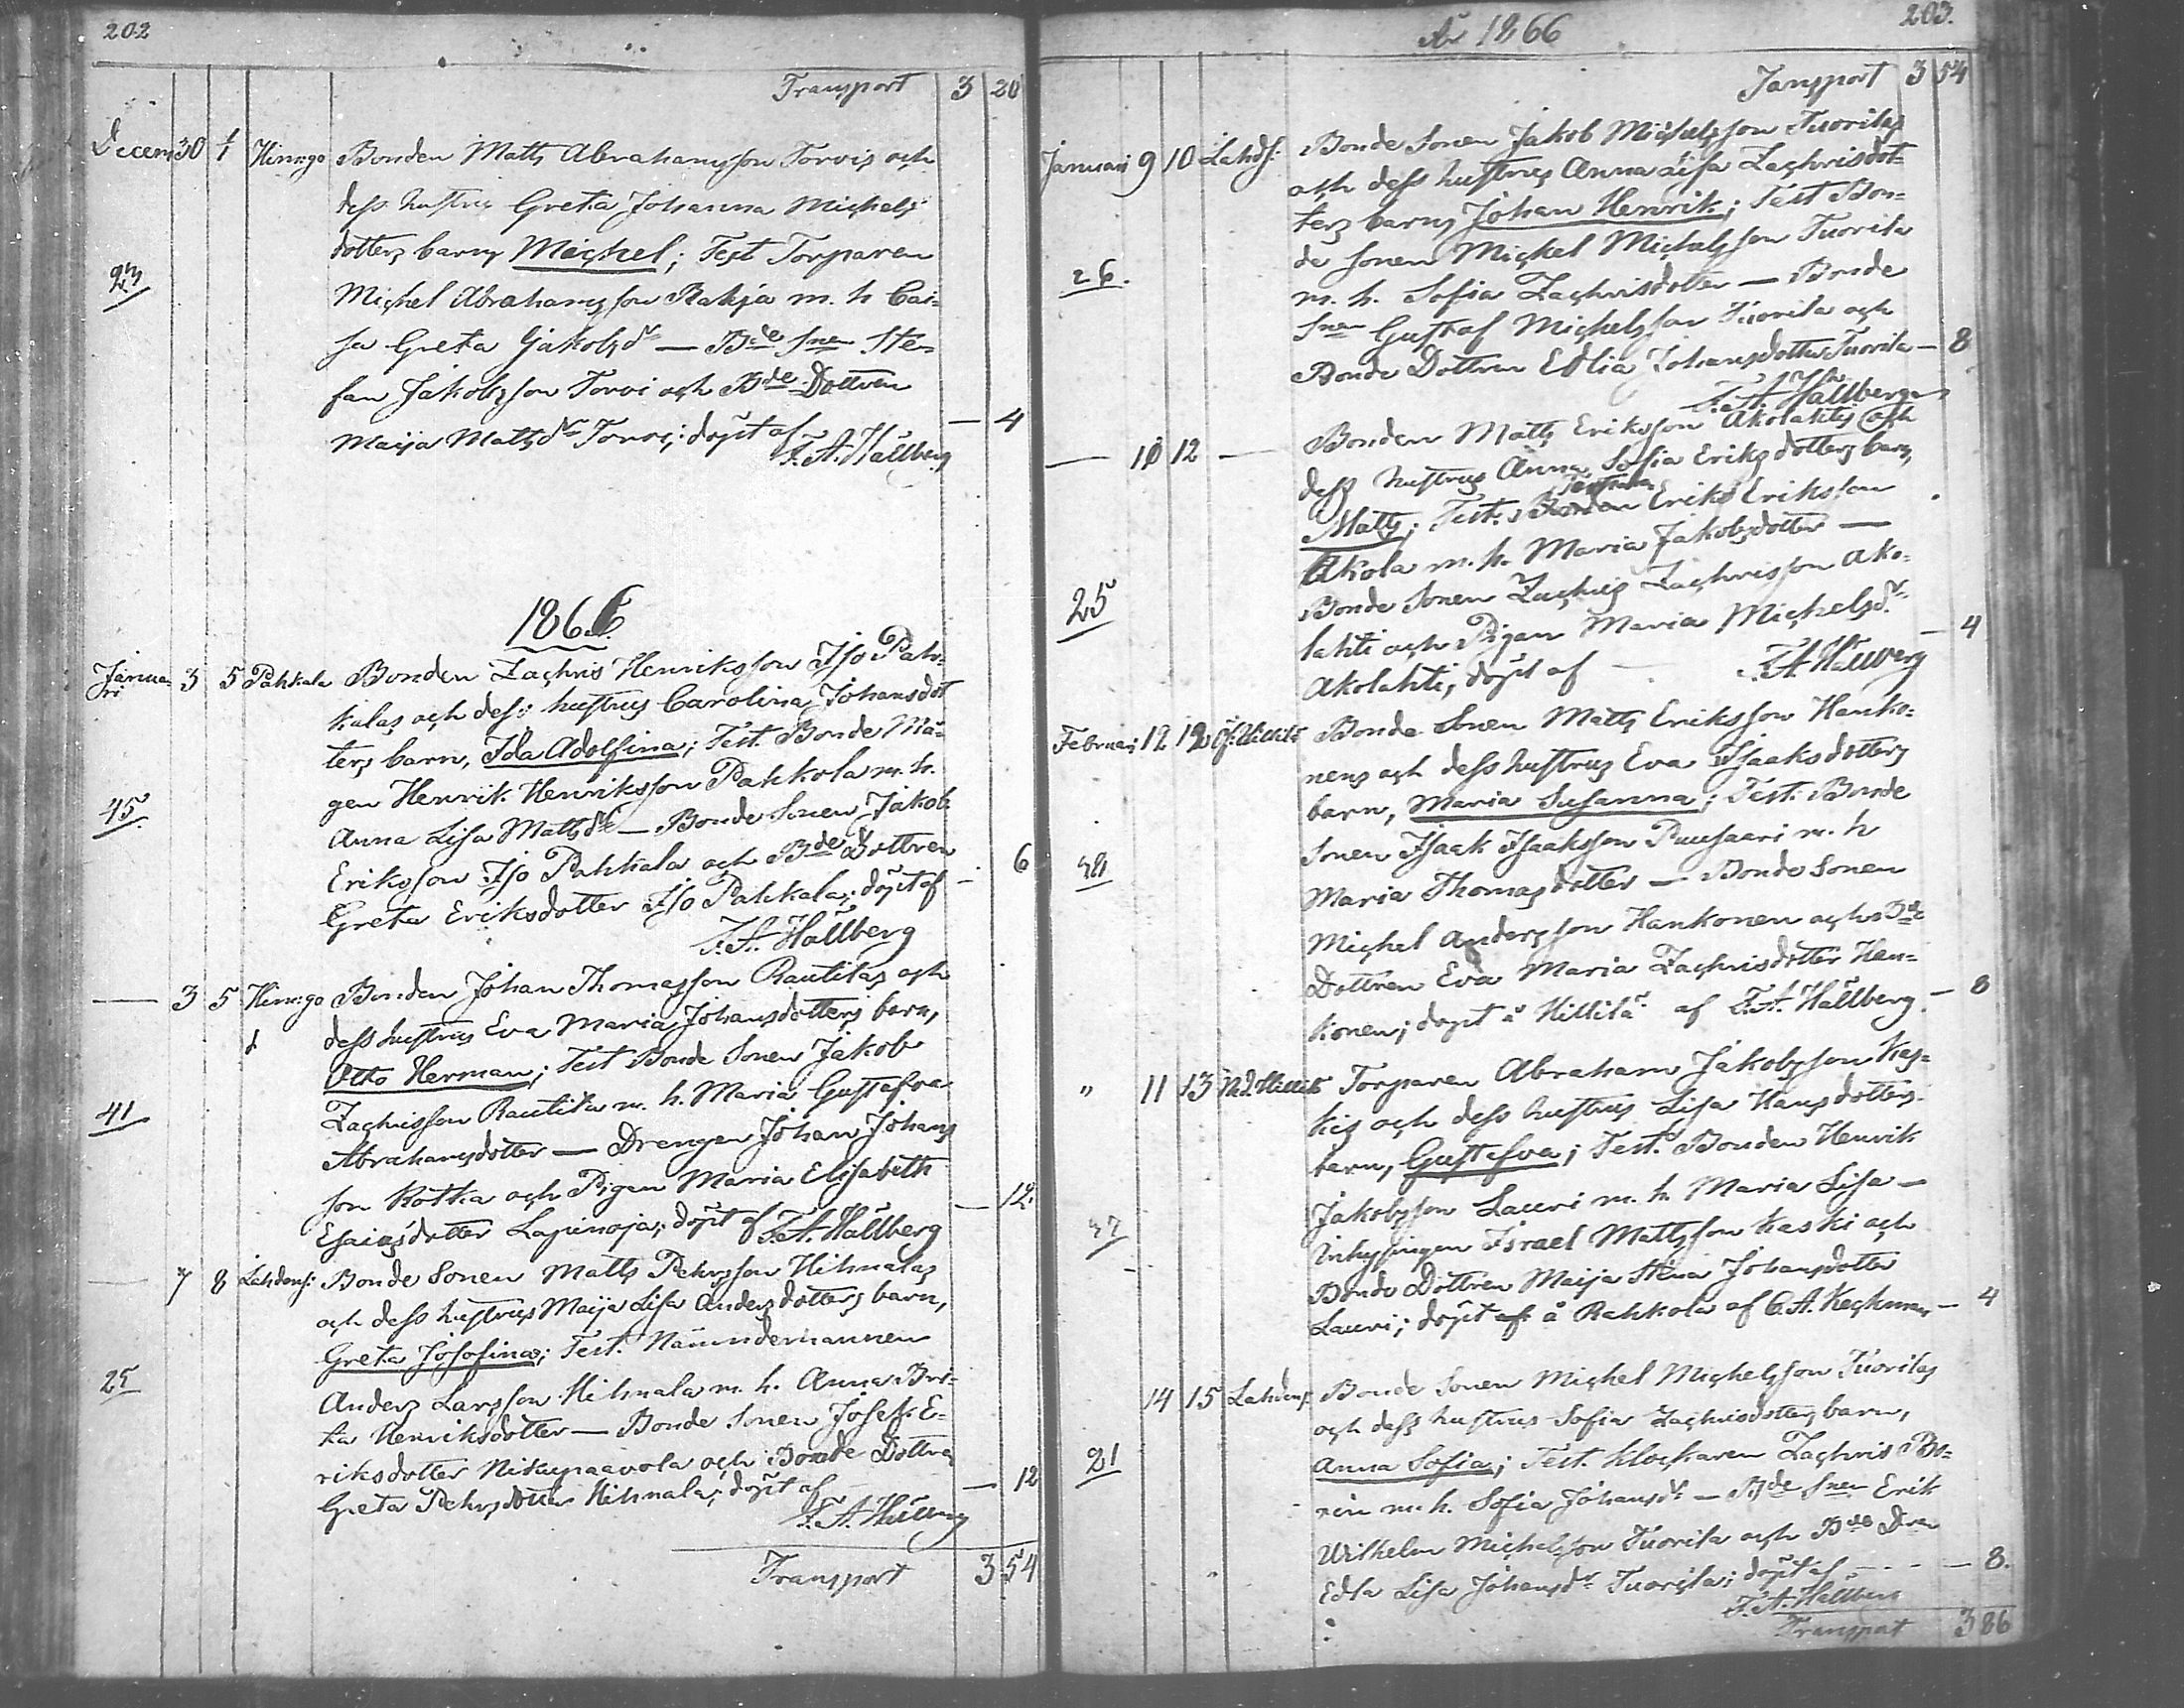 202
Transport 3 20
Decem 30 1/1 Hirvigo Bonden Matts Abrahamsson Torvis och
dess hustrus Greta Johanna Michels
dotters barn Michel; Test Torparen
23
Michel Abrahamsson Rahja m. h Cai-
sa Greta Jakobsdr — Bde Snen Ste-
fan Jakobsson Torvi och Bde Dottren
Maija Mattsdr Torvi; döpt af — 4
F. A. Hällberg
1866.
Januari 3 5 Pahkala Bonden Zachris Henriksson Iso Pah-
kalas och dess hustrus Carolina Johansdot
ters barn, Ida Adolfina; Test. Bonde Må-
gen Henrik Henriksson Pahkola m. h.
45.
Anna Lisa Mattsdr — Bonde Sonen Jakob
Eriksson Iso Pahkala och Bde Dottren
Greta Eriksdotter Iso Pahkala; döpt af — 6
F. A. Hällberg
— 3 5 Hirvigo Bonden Johan Thomasson Rautilas och
dess hustrus Eva Maria Johansdotters barn,
Otto Herman; Test Bonde Sonen Jakob
41
Zachrisson Rautila m. h. Maria Gustafva
Abrahamsdotter — Drengen Johan Johans
son Kotka och Pigan Maria Elisabeth
Esaiasdotter Lapinoja; döpt af F. A. Hällberg — 12.
— 7 8 Lahdens: Bonde Sonen Matts Pehrsson Hihnalas
och dess hustrus Maija Lisa Andersdotters barn,
Greta Josefina; Test. Nämndemannen
25
Anders Larsson Hihnala m. h. Anna Bri-
ta Henriksdotter — Bonde Sonen Josef E-
riksdotter Nikupaavola och Bonde Dottren
Greta Pehrsdotter Hihnala; döpt af — 12
F. A. Hällberg
Transport 3 54
År 1866
203.
Tansport 3 54
Januari 9 10 Lahds: Bonde Sonen Jakob Michelsson Tuorilas
och dess hustrus Anna Lisa Zachrisdot-
ters barn Johan Henrik; Test Bon-
de Sonen Michel Michelsson Tuorila
26.
m. h. Sofia Zachrisdotter — Bonde
Snen Gustaf Michelsson Tuorila och
Bonde Dottren Edlia Johansdotter Tuorila — 8
F. A. Hällberg
— 10 12 — Bonden Matts Eriksson Akolahtis och
dess hustrus Anna Sofia Eriksdotters barn,
Matts; Test. Erik Eriksson
Akola m. h. Maria Jakobsdotter —
25
Bonde Sonen Zachris Zachrisson Ako-
lahti och Pigan Maria Michelsdr
Akolahti, döpt af — 4
F. A. Hällberg
Februari 12 12 Öf. Hillilä Bonde Sonen Matts Eriksson Hanko-
nens och dess hustrus Eva Isaaksdotters
barn, Maria Susanna; Test. Bonde
Sonen Isaak Isaaksson Puusaari m. h
Maria Thomasdotter — Bonde Sonen
Michel Andersson Hankonen och Bde
Dottren Eva Maria Zachrisdotter Han-
konen; döpt å Hillilä af F. A. Hällberg. — 8
" 11 13 Ned. Hillilä Torparen Abraham Jakobsson Kas-
kis och dess hustrus Lisa Hansdotters
barn, Gustafva; Test. Bonden Henrik
Jakobsson Lauri m. h. Maria Lisa —
47
Inhysingen Israel Mattsson Kaski och
Bonde Dottren Maija Stina Johansdotter
Lauri; döpt af å Rahkola af C. A. Keckman — 4
14 15 Lahdens: Bonde Sonen Michel Michelsson Tuorilas
och dess hustrus Sofia Zachrisdotters barn,
21
Anna Sofia; Test. Klockaren Zachris Bo-
rin m. h. Sofia Johansdr — Bde Snen Erik
Wilhelm Michelsson Tuorila och Bde Dren
Edla Lisa Johansdr Tuorila; döpt af — 8.
F. A. Hällberg
Transport 3 86